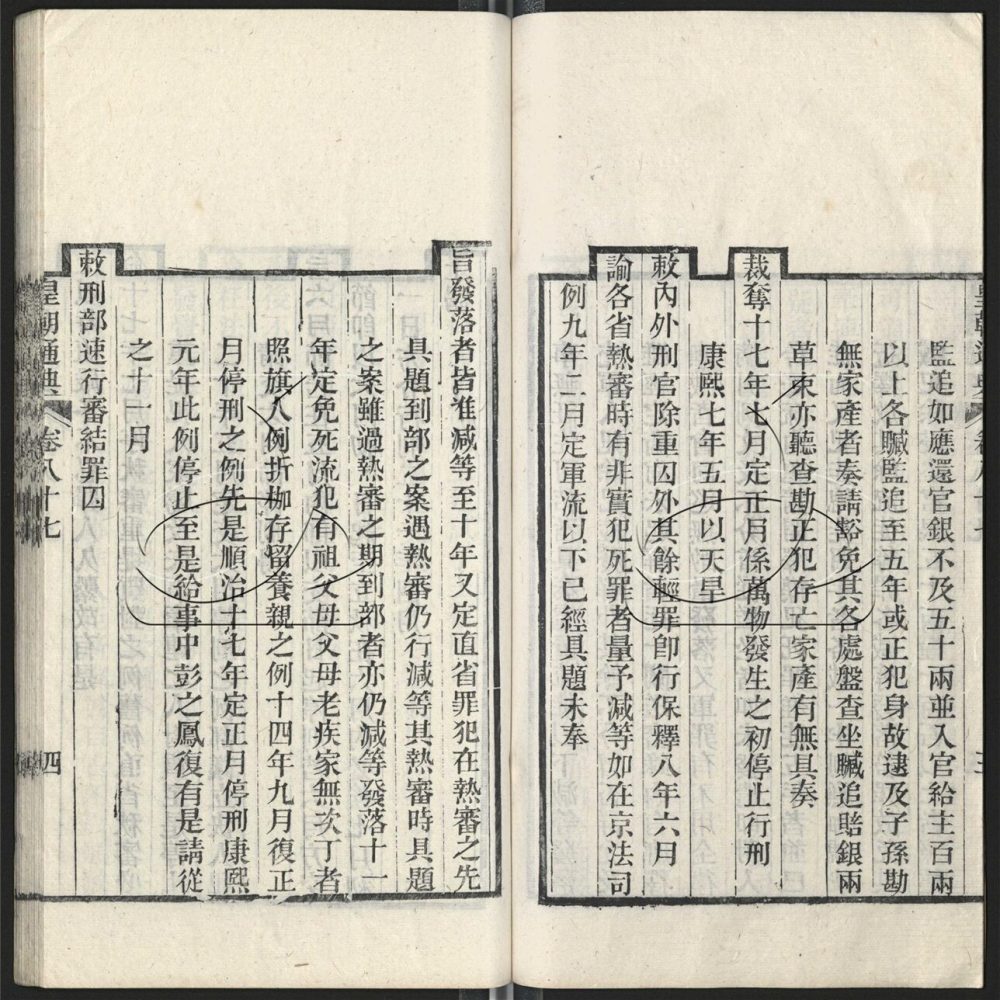 監追如應還官銀不及五十兩並入官給主百兩
以上各贓監追至五年或正犯身故逮及子孫勘
無家產者奏請豁免其各處盤查坐贓追賠銀兩
草束亦聽查勘正犯存亡家產有無具奏
裁奪十七年七月定正月係萬物發生之初停止行刑
康熙七年五月以天旱
敕內外刑官除重囚外其餘輕罪卽行保釋八年六月
諭各省熱審時有非實犯死罪者量予減等如在京法司
例九年二月定軍流以下已經具題未奉
旨發落者皆准減等至十年又定直省罪犯在熱審之先
具題到部之案遇熱審仍行減等其熱審時具題
之案雖過熱審之期到部者亦仍減等發落十一
年定免死流犯有祖父母父母老疾家無次丁者
照旗人例折枷存留養親之例十四年九月復正
月停刑之例先是順治十七年定正月停刑康熙
元年此例停止至是給事中彭之鳳復有是請從
之十一月
敕刑部速行審結罪囚
皇朝通典 卷八十七 四